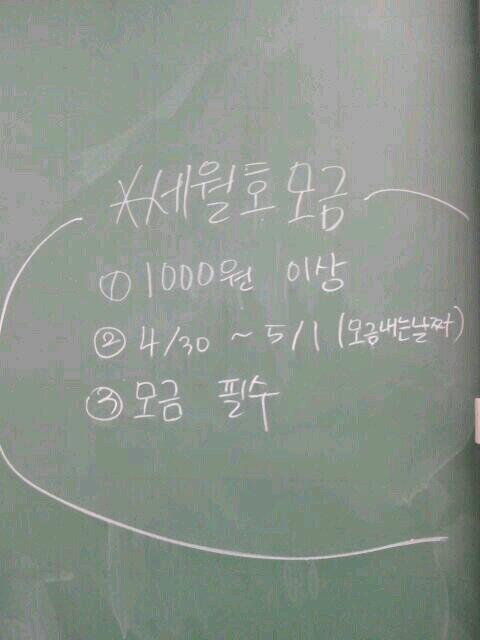 ※세월호 모금
① 1000원 이상
② 4/30 ~ 5/1 (모금내는날짜)
③ 모금 필수